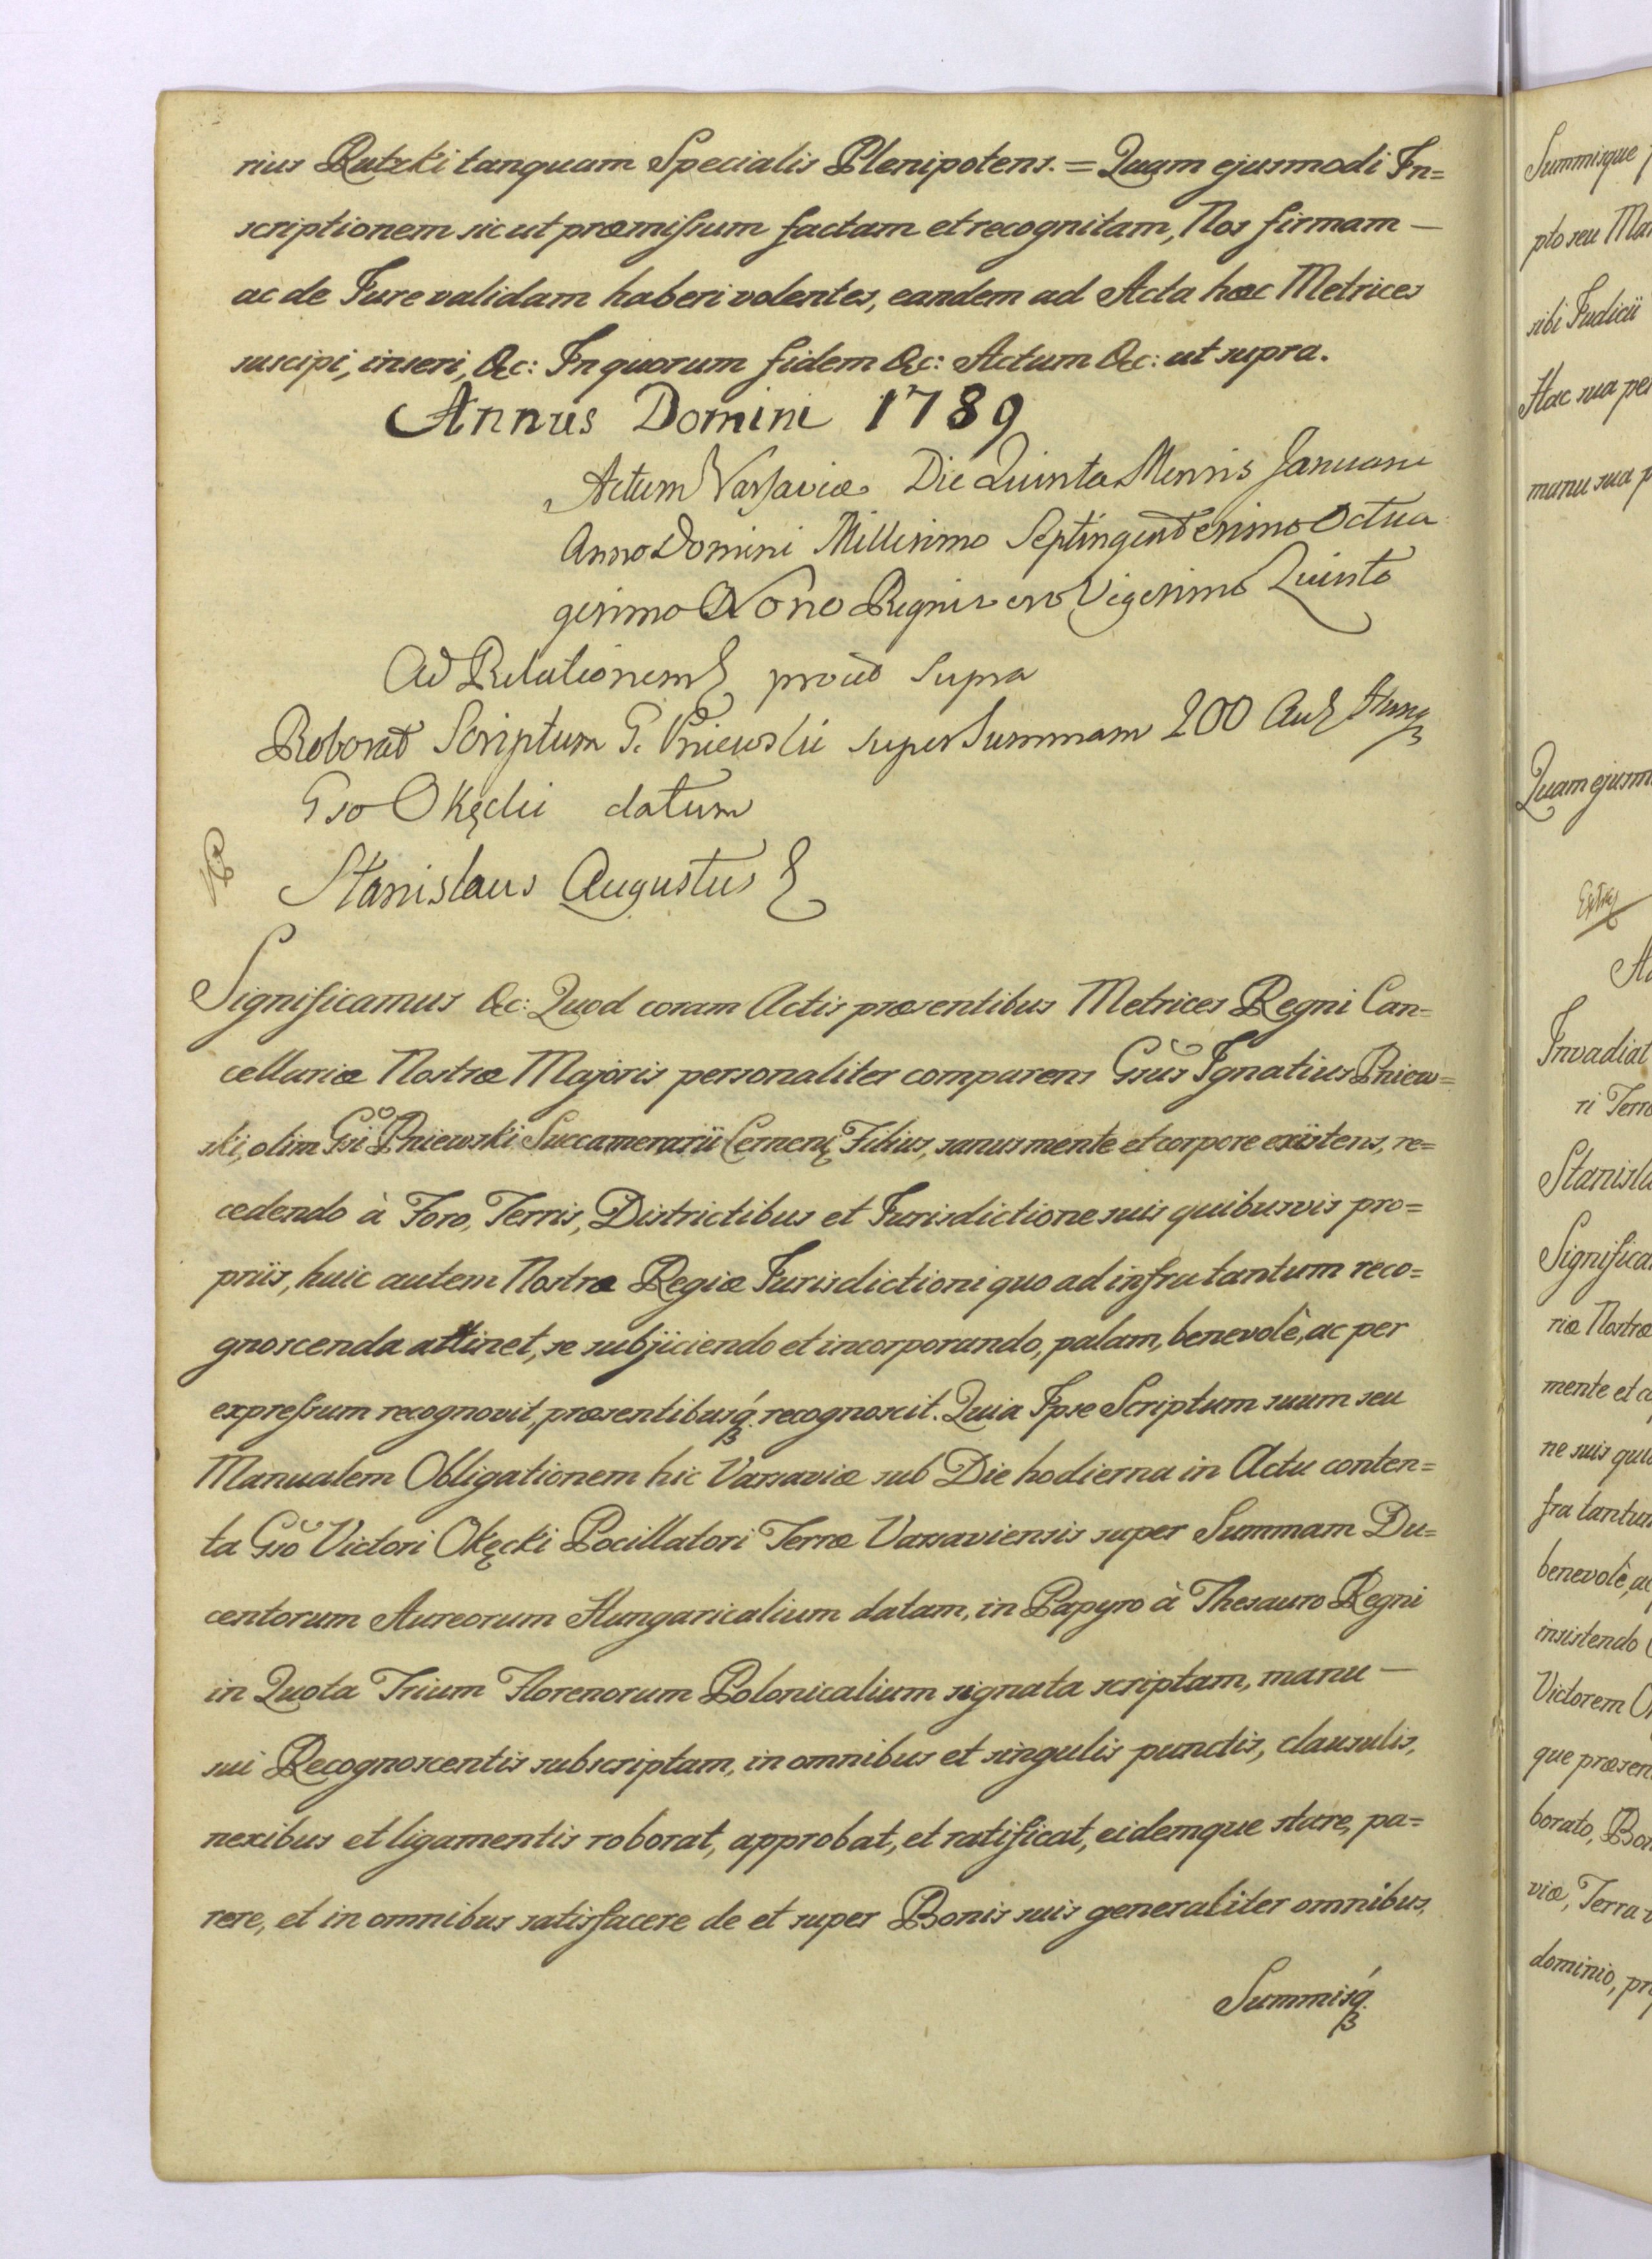 rius Rutzki tanquam Specialis Plenipotens. = Quam ejusmodi In=
scriptionem sicut præmissum factam et recognitam, Nos firmam —
ac de Jure validam haberi volentes, eandem ad Acta hæc Metrices
suscipi, inseri, &c: In quorum fidem &c: Actum &c: ut supra.
Annus Domini 1789
Actum Varsaviæ Die Quinta Mensis Januarii
Anno Domini Millesimo Septingentesimo Octua
gesimo Nono Regni vero Vigesimo Quinto
Ad Relationem prout supra
Roborat Scriptum G. Pniewski super Summam 200 Aur Hung
Gso Okęcki datum
Stanislaus Augustus
Significamus &c: Quod coram Actis præsentibus Metrices Regni Can=
cellariæ Nostræ Majoris personaliter comparens Gsus Ignatius Pniew=
ski, olim Gsi Pniewski Succamerarii Filius, sanus mente et corpore existens, re=
cedendo à Foro, Terris, Districtibus et Jurisdictione suis quibusvis pro=
priis, huic autem Nostræ Regiæ Jurisdictioni quo ad infra tantum reco=
gnoscenda attinet, se subjiciendo et incorporando, palam, benevolè, ac per
expressum recognovit, præsentibusq́ recognoscit. Quia Ipse Scriptum suum seu
Manualem Obligationem hic Varsaviæ sub Die hodierna in Actu conten=
ta Gso Victori Okęcki Pocillatori Terræ Varsaviensis super Summam Du=
centorum Aureorum Hungaricalium datam, in Papyro à Thesauro Regni
in Quota Trium Florenorum Polonicalium signata scriptam, manu —
sui Recognoscentis subscriptam, in omnibus et singulis punctis, clausulis,
nexibus et ligamentis roborat, approbat, et ratificat, eidemque stare, pa=
rere, et in omnibus satisfacere de et super Bonis suis generaliter omnibus,
Summisq́
Summisque
pto seu
sibi Judicii
Hac sua
manu sua
Quam
Stanisla
Significa
riæ Nostræ
mente et
ne suis
fra tantum
benevolè,
insistendo
Victorem
que præsen
borato,
viæ, Terra
dominio,